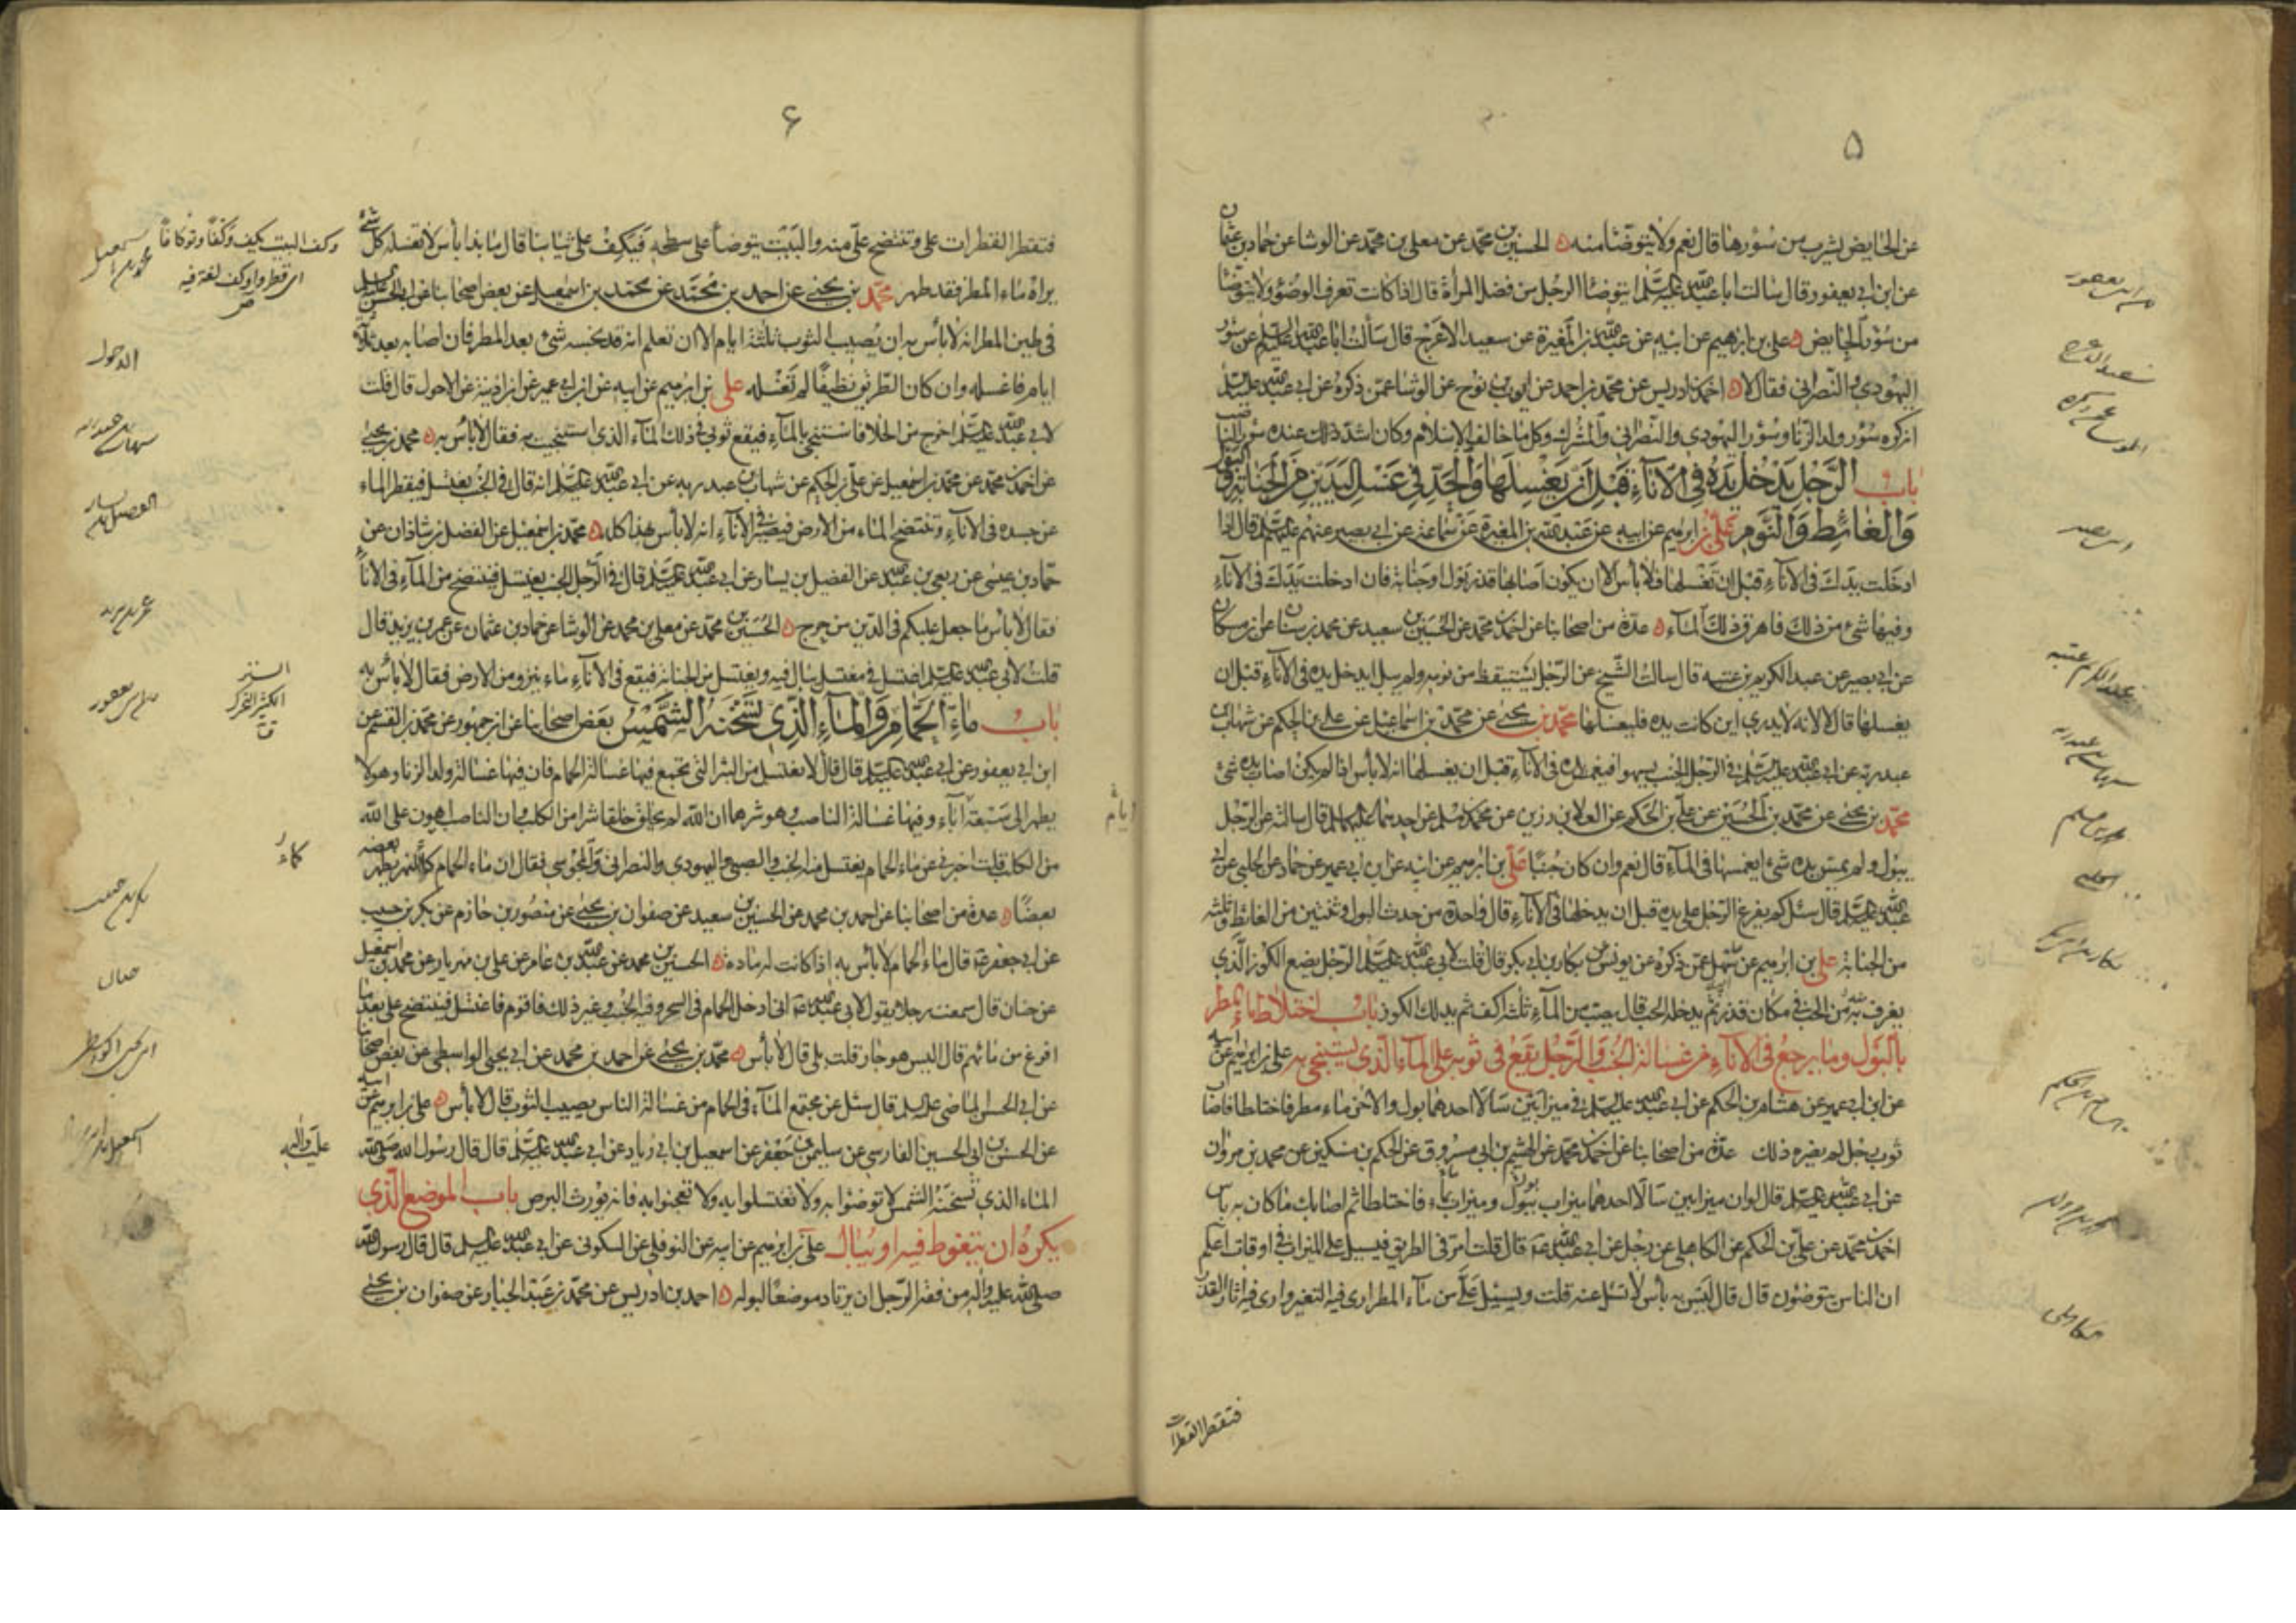 ۵
عن الحايض يشرب من سؤرها قال نعم ولا يتوضأ منه الحسين بن محمد عن معلى بن محمد عن الوشا عن حماد بن عثمان
عن ابن ابي يعفور قال سالت ابا عبد الله عليه السلم ايتوضأ الرجل من فضل المرأة قال اذا كانت تعرف الوضوء ولا يتوضأ
من سؤر الحايض علي بن ابرهيم عن ابيه عن عبد الله بن المغيرة عن سعيد الاعرج قال سألت ابا عبد الله عليه السلم عن سؤر
اليهودي والنصراني فقال لا احمد بن ادريس عن محمد بن احمد عن ايوب بن نوح عن الوشا عمن ذكره عن ابي عبد الله عليه السلم
انه كره سؤر ولد الزنا وسؤر اليهودي والنصراني والمشرك وكل ما خالف الاسلام وكان اشد ذلك عنده سؤر الناصب
باب الرجل يدخل يده في الاناء قبل ان يغسلها والحد في غسل اليدين من الجنابة والبول
والغائط والنوم علي بن ابرهيم عن ابيه عن عبد الله بن المغيرة عن سماعة عن ابي بصير عنهم عليهم السلم قال اذا
ادخلت يدك في الاناء قبل ان تغسلها فلا بأس الا ان يكون اصابها قذر بول او جنابة فان ادخلت يدك في الاناء
وفيها شيء من ذلك فاهرق ذلك الماء عدة من اصحابنا عن احمد بن محمد عن الحسين بن سعيد عن محمد بن سنان عن ابن مسكان
عن ابي بصير عن عبد الكريم بن عتبة قال سالت الشيخ عن الرجل يستيقظ من نومه ولم يبل ايدخل يده في الاناء قبل ان
يغسلها قال لا لانه لا يدري اين كانت يده فليغسلها محمد بن يحيى عن محمد بن اسماعيل عن علي بن الحكم عن شهاب بن
عبد ربه عن ابي عبد الله عليه السلم في الرجل الجنب يسهو فيغمس يده في الاناء قبل ان يغسلها انه لا بأس اذا لم يكن اصاب يده شيء
محمد بن يحيى عن محمد بن الحسين عن علي بن الحكم عن العلا بن رزين عن محمد بن مسلم عن احدهما عليهما السلم قال سالته عن الرجل
يبول ولم يمس يده شيء ايغمسها في الماء قال نعم وان كان جنبا علي بن ابرهيم عن ابيه عن ابن ابي عمير عن حماد عن الحلبي عن ابي
عبد الله عليه السلم قال سئل كم يفرغ الرجل على يده قبل ان يدخلها في الاناء قال واحدة من حدث البول وثنتين من الغائط وثلثة
من الجنابة علي بن ابرهيم عن سهل عمن ذكره عن يونس عن بكار بن ابي بكر قال قلت لابي عبد الله عليه السلم الرجل يضع الكوز الذي
يغرف به من الحب في مكان قذر ثم يدخله الحب قال يصب من الماء ثلثة اكف ثم يدلك الكوز باب اختلاط ماء المطر
بالبول وما يرجع في الاناء من غسالة الجنب والرجل يقع في ثوبه على الماء الذي يستنجي به علي بن ابرهيم عن ابيه
عن ابن ابي عمير عن هشام بن الحكم عن ابي عبد الله عليه السلم في ميزابين سالا احدهما بول والاخر ماء مطر فاختلطا فاصاب
ثوب رجل لم يضره ذلك عدة من اصحابنا عن احمد بن محمد عن الهيثم بن ابي مسروق عن الحكم بن مسكين عن محمد بن مروان
عن ابي عبد الله عليه السلم قال لو ان ميزابين سالا احدهما ميزاب ببول وميزاب بماء فاختلطا ثم اصابك ما كان به بأس
احمد بن محمد عن علي بن الحكم عن الكاهلي عن رجل عن ابي عبد الله ع قال قلت امر في الطريق فيسيل علي الميزاب في اوقات اعلم
ان الناس يتوضئون قال قال ليس به بأس لا تسئل عنه قلت ويسيل علي من ماء المطر ارى فيه التغير وارى فيه اثار القذر
فتقطر القطرات
سعيد الاعرج
عبد الكريم بن عتبة
محمد بن مسلم
الحلبي
۶
فتقطر القطرات علي وتنتضح علي منه والبيت يتوضأ على سطحه فيكف على ثيابنا قال ما بذا بأس لا تغسله كل شيء
يراه ماء المطر فقد طهر محمد بن يحيى عن احمد بن محمد عن محمد بن اسمعيل عن بعض اصحابنا عن ابي الحسن عليه السلم
في طين المطر انه لا بأس به ان يصيب الثوب ثلثة ايام الا ان تعلم انه قد نجسه شيء بعد المطر فان اصابه بعد ثلثة
ايام فاغسله وان كان الطريق نظيفا لم تغسله علي بن ابرهيم عن ابيه عن ابن ابي عمير عن ابن اذينة عن الاحول قال قلت
لابي عبد الله عليه السلم اخرج من الخلا فاستنجي بالماء فيقع ثوبي في ذلك الماء الذي استنجيت به فقال لا بأس به محمد بن يحيى
عن احمد بن محمد عن محمد بن اسمعيل عن علي بن الحكم عن شهاب بن عبد ربه عن ابي عبد الله عليه السلم انه قال في الجنب يغتسل فيقطر الماء
عن جسده في الاناء وتنتضح الماء من الارض فيصير في الاناء انه لا بأس بهذا كله محمد بن اسمعيل عن الفضل بن شاذان عن
حماد بن عيسى عن ربعي بن عبد الله عن الفضيل بن يسار عن ابي عبد الله عليه السلم قال في الرجل الجنب يغتسل فينتضح من الماء في الاناء
فقال لا بأس ما جعل عليكم في الدين من حرج الحسين بن محمد عن معلى بن محمد عن الوشا عن حماد بن عثمان عن عمر بن يزيد قال
قلت لابي عبد الله عليه السلم اغتسل في مغتسل يبال فيه ويغتسل من الجنابة فيقع في الاناء ماء ينزو من الارض فقال لا بأس به
باب ماء الحمام والماء الذي تسخنه الشمس بعض اصحابنا عن ابن جمهور عن محمد بن القسم عن
ابن ابي يعفور عن ابي عبد الله عليه السلم قال قال لا تغتسل من البئر التي تجتمع فيها غسالة الحمام فان فيها غسالة ولد الزنا وهو لا
يطهر الى سبعة آباء وفيها غسالة الناصب وهو شرهما ان الله لم يخلق خلقا شرا من الكلب وان الناصب اهون على الله
من الكلب قلت اخبرني عن ماء الحمام يغتسل منه الجنب والصبي واليهودي والنصراني والمجوسي فقال ان ماء الحمام كماء النهر يطهر بعضه
بعضا عدة من اصحابنا عن احمد بن محمد عن الحسين بن سعيد عن صفوان بن يحيى عن منصور بن حازم عن بكر بن حبيب
عن ابي جعفر ع قال ماء الحمام لا بأس به اذا كانت له مادة الحسين بن محمد عن عبد الله بن عامر عن علي بن مهزيار عن محمد بن اسمعيل
عن حنان قال سمعت رجلا يقول لابي عبد الله ع اني ادخل الحمام في السحر وفيه الجنب وغير ذلك فاقوم فاغتسل فينتضح علي بعد ما
افرغ من مائهم قال اليس هو جار قلت بلى قال لا بأس محمد بن يحيى عن احمد بن محمد عن ابي يحيى الواسطي عن بعض اصحابنا
عن ابي الحسن الماضي عليه السلم قال سئل عن مجتمع الماء في الحمام من غسالة الناس يصيب الثوب قال لا بأس علي بن ابرهيم عن ابيه
عن الحسن بن ابي الحسين الفارسي عن سليمن بن جعفر عن اسمعيل بن ابي زياد عن ابي عبد الله عليه السلم قال قال رسول الله صلى الله
الماء الذي تسخنه الشمس لا توضئوا به ولا تغتسلوا به ولا تعجنوا به فانه يورث البرص باب الموضع الذي
يكره ان يتغوط فيه او يبال علي بن ابرهيم عن ابيه عن النوفلي عن السكوني عن ابي عبد الله عليه السلم قال قال رسول الله
صلى الله عليه واله من فقه الرجل ان يرتاد موضعا لبوله احمد بن ادريس عن محمد بن عبد الجبار عن صفوان بن يحيى
وكف البيت يكف وكفا وتوكافا
اي قطر واوكف لغة فيه
محمد بن اسمعيل
عمر بن يزيد
كماء
بكر بن حبيب
حنان
عليه واله